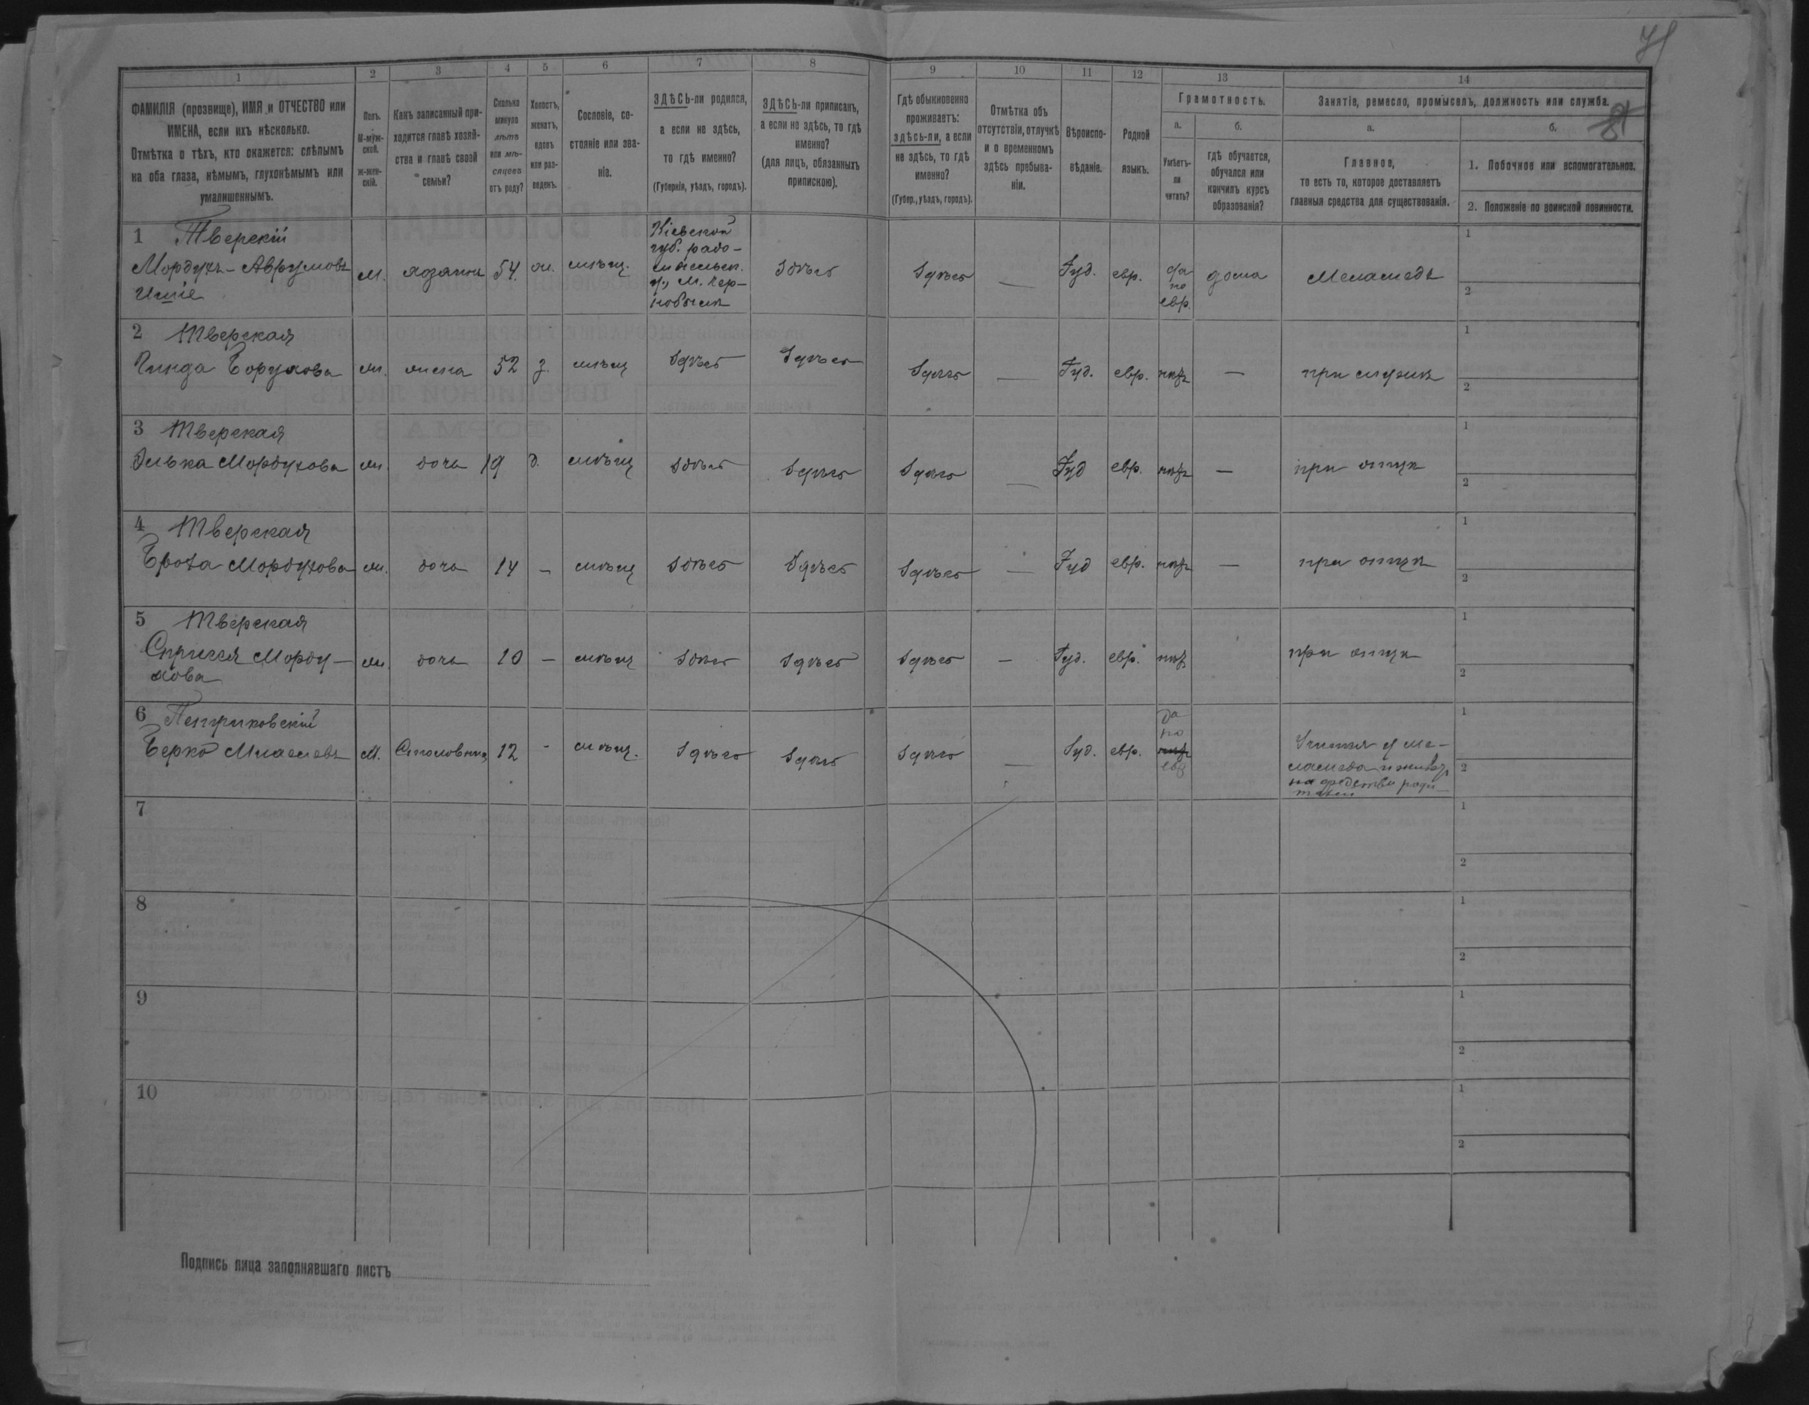 71
1 2 3 4 5 6 7 8 9 10 11 12 13 14
ФАМИЛІЯ (прозвище), ИМЯ и ОТЧЕСТВО или
ИМЕНА, если ихъ нѣсколько.
Отмѣтка о тѣхъ, кто окажется: слѣпымъ
на оба глаза, нѣмымъ, глухонѣмымъ или
умалишеннымъ.
Полъ.
М-муж-
ской.
Ж-жен-
скій.
Какъ записанный при-
ходится главѣ хозяй-
ства и главѣ своей
семьи?
Сколько
минуло
лѣтъ
или мѣ-
сяцевъ
отъ роду?
Холостъ,
женатъ,
вдовъ
или раз-
веденъ.
Сословіе, со-
стояніе или зва-
ніе.
ЗДѢСЬ-ли родился,
а если не здѣсь,
то гдѣ именно?
(Губернія, уѣздъ, городъ).
ЗДѢСЬ-ли приписанъ,
а если не здѣсь, то гдѣ
именно?
(для лицъ, обязанныхъ
припискою).
Гдѣ обыкновенно
проживаетъ:
здѣсь-ли, а если
не здѣсь, то гдѣ
именно?
(Губер., уѣздъ, городъ).
Отмѣтка объ
отсутствіи, отлучкѣ
и о временномъ
здѣсь пребыва-
ніи.
Вѣроиспо-
вѣданіе.
Родной
языкъ.
Грамотность.
а.
Умѣетъ-
ли
читать?
б.
гдѣ обучается,
обучался или
кончилъ курсъ
образованія?
Занятіе, ремесло, промыселъ, должность или служба.
а.
Главное,
то есть то, которое доставляетъ
главныя средства для существованія.
б.
1. Побочное или вспомогательное.
2. Положеніе по воинской повинности.
1 Тверскій
Мордухъ-Аврумовъ
М. хозяинъ 54 ж. мѣщ.
Кіевской
губ. радо-
мысльск.
у., м. Чер-
нобыль
здѣсь здѣсь — Іуд. евр.
да
по
евр.
дома Меламедъ
1
2
2 Тверская
Борухова ж. жена 52 з. мѣщ здѣсь здѣсь здѣсь — Іуд. евр. нѣтъ — при мужѣ
1
2
3 Тверская
Мордухова ж. дочь 19 д. мѣщ здѣсь здѣсь здѣсь — Іуд евр. нѣтъ — при отцѣ
1
2
4 Тверская
Мордухова ж. дочь 14 — мѣщ здѣсь здѣсь здѣсь — Іуд евр. нѣтъ — при отцѣ
1
2
5 Тверская
Морду-
хова
ж. дочь 10 — мѣщ здѣсь здѣсь здѣсь — Іуд. евр. нѣтъ при отцѣ
1
2
6
Берко М. 12 - мѣщ. здѣсь здѣсь здѣсь — Іуд. евр.
да
по
нѣтъ
евр
у ме-
ламеда и живетъ
на средства роди-
телей
1
2
7
1
2
8
1
2
9
1
2
10
1
2
Подпись лица заполнявшаго листъ